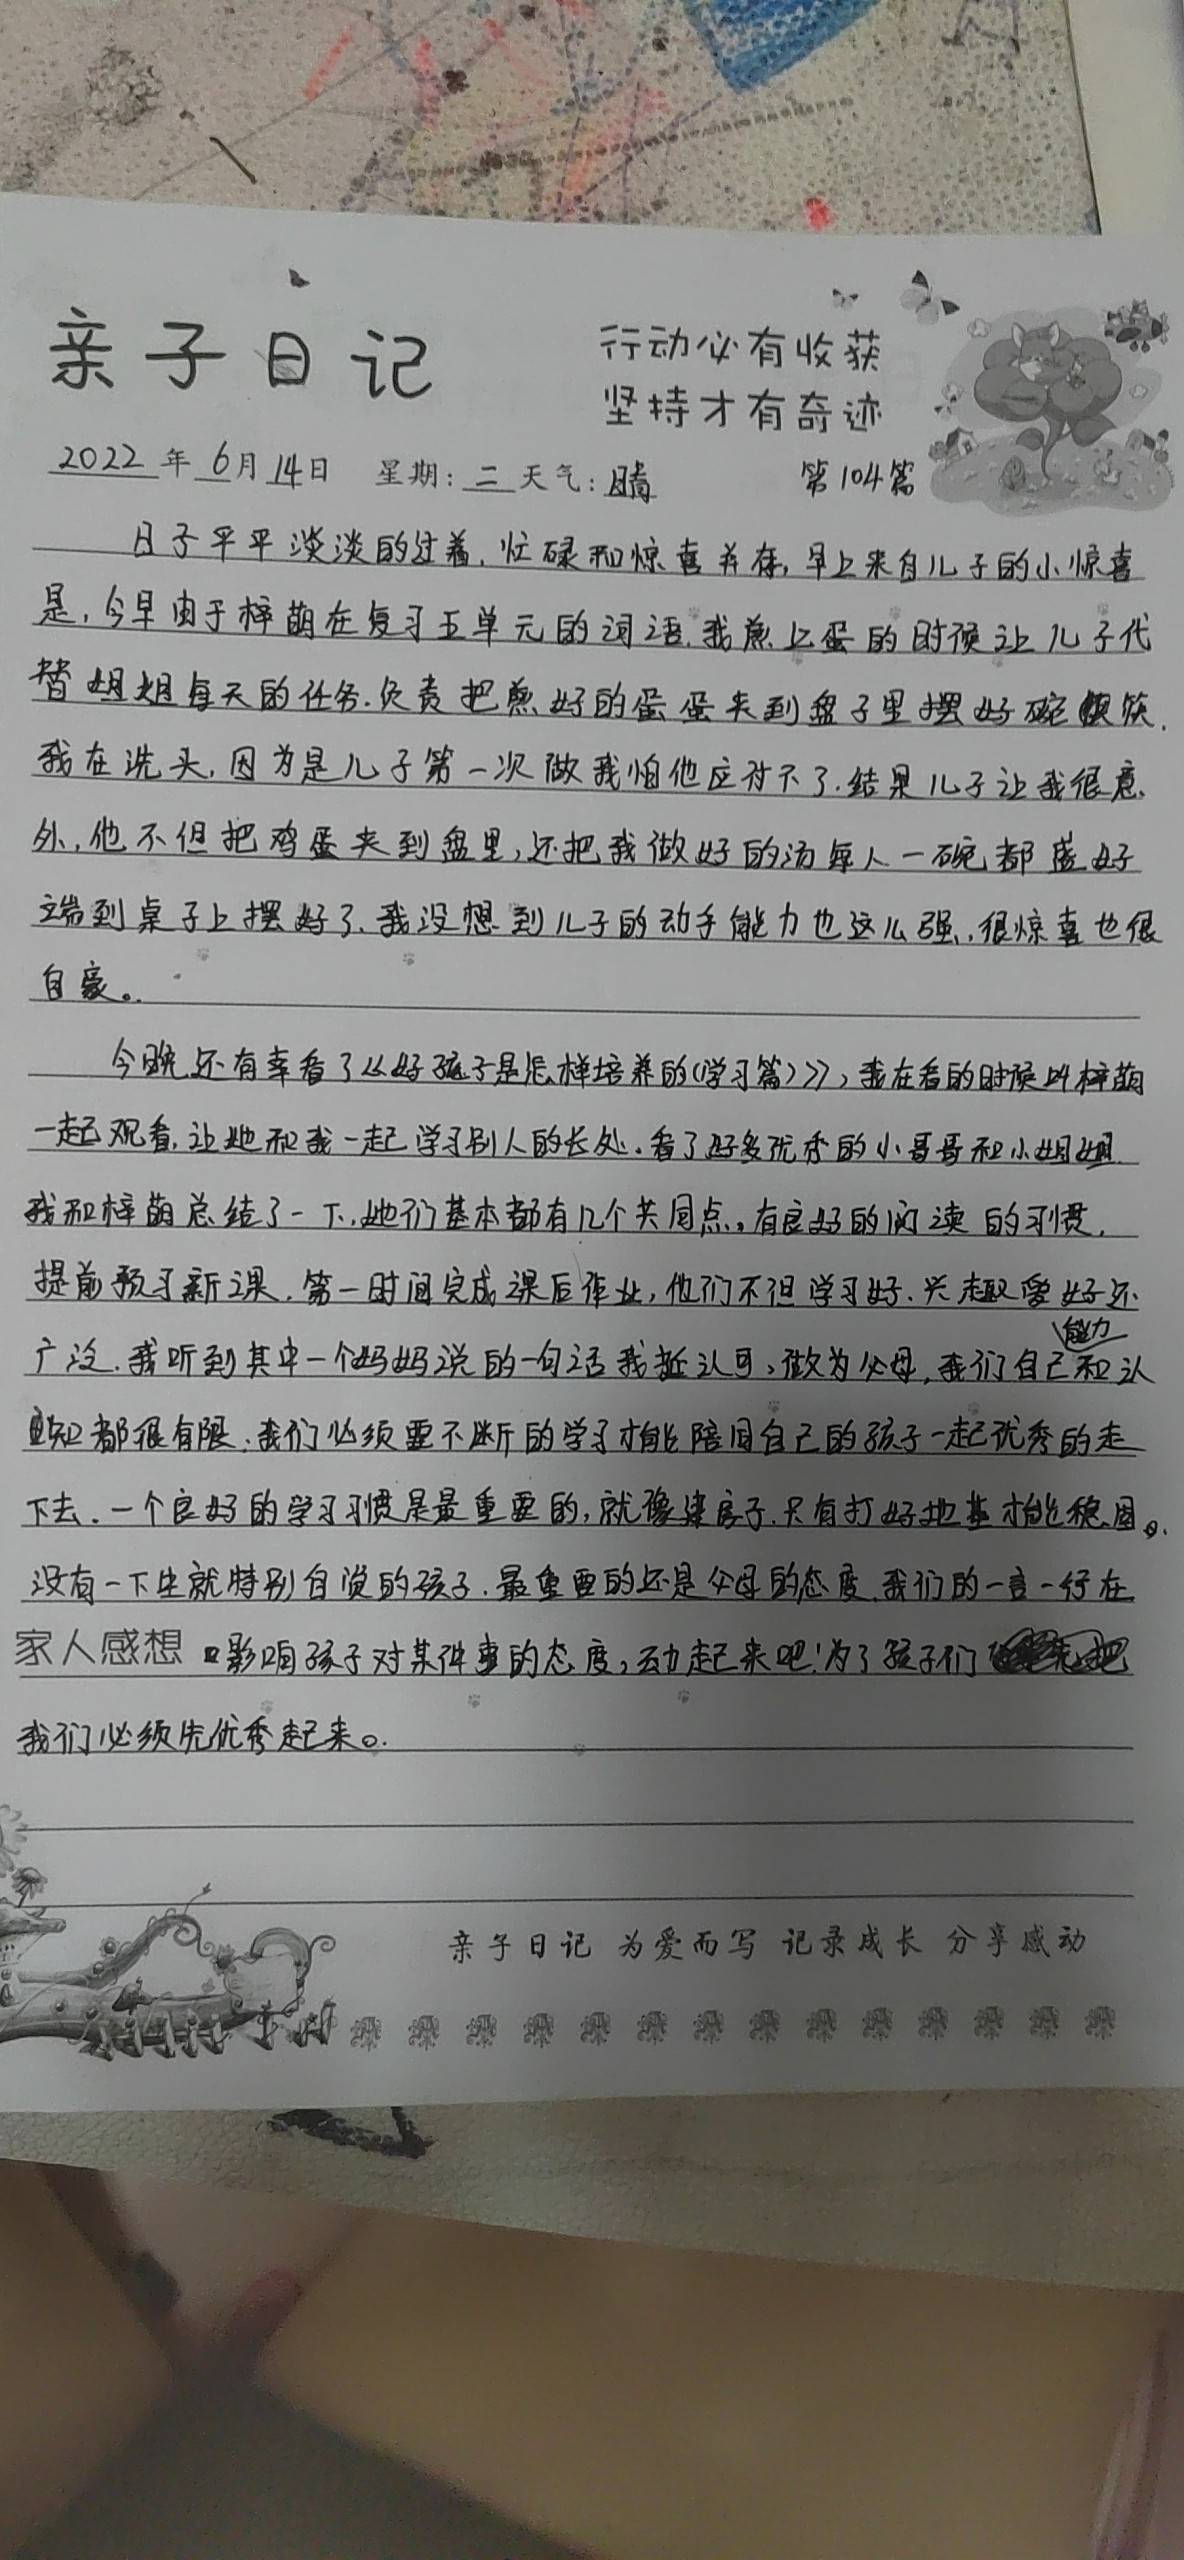 亲子日记
行动必有收获
坚持才有奇迹
2022年6月14日 星期:二 天气:晴 第104篇
日子平平淡淡的过着,忙碌和惊喜并存,早上来自儿子的小惊喜
是,今早由于梓萌在复习五单元的词语,我煎上蛋的时候让儿子代
替姐姐每天的任务,负责把煎好的蛋蛋夹到盘子里摆好碗筷,
我在洗头,因为是儿子第一次做我怕他应对不了,结果儿子让我很意
外,他不但把鸡蛋夹到盘里,还把我做好的汤每人一碗都盛好
端到桌子上摆好了,我没想到儿子的动手能力也这么强,很惊喜也很
自豪。
今晚还有幸看了《好孩子是怎样培养的(学习篇)》,我在看的时候叫梓萌
一起观看,让她和我一起学习别人的长处。看了好多优秀的小哥哥和小姐姐,
我和梓萌总结了一下,她们基本都有几个共同点,有良好的阅读的习惯,
提前预习新课,第一时间完成课后作业,他们不但学习好,兴趣爱好还
广泛,我听到其中一个妈妈说的一句话我挺认可,做为父母,我们自己能力和认
知都很有限,我们必须要不断的学习才能陪同自己的孩子一起优秀的走
下去,一个良好的学习习惯是最重要的,就像建房子,只有打好地基才能稳固。
没有一下生就特别自觉的孩子,最重要的还是父母的态度,我们的一言一行在
家人感想 影响孩子对某件事的态度,动起来吧!为了孩子们
我们必须先优秀起来。
亲子日记 为爱而写 记录成长 分享感动